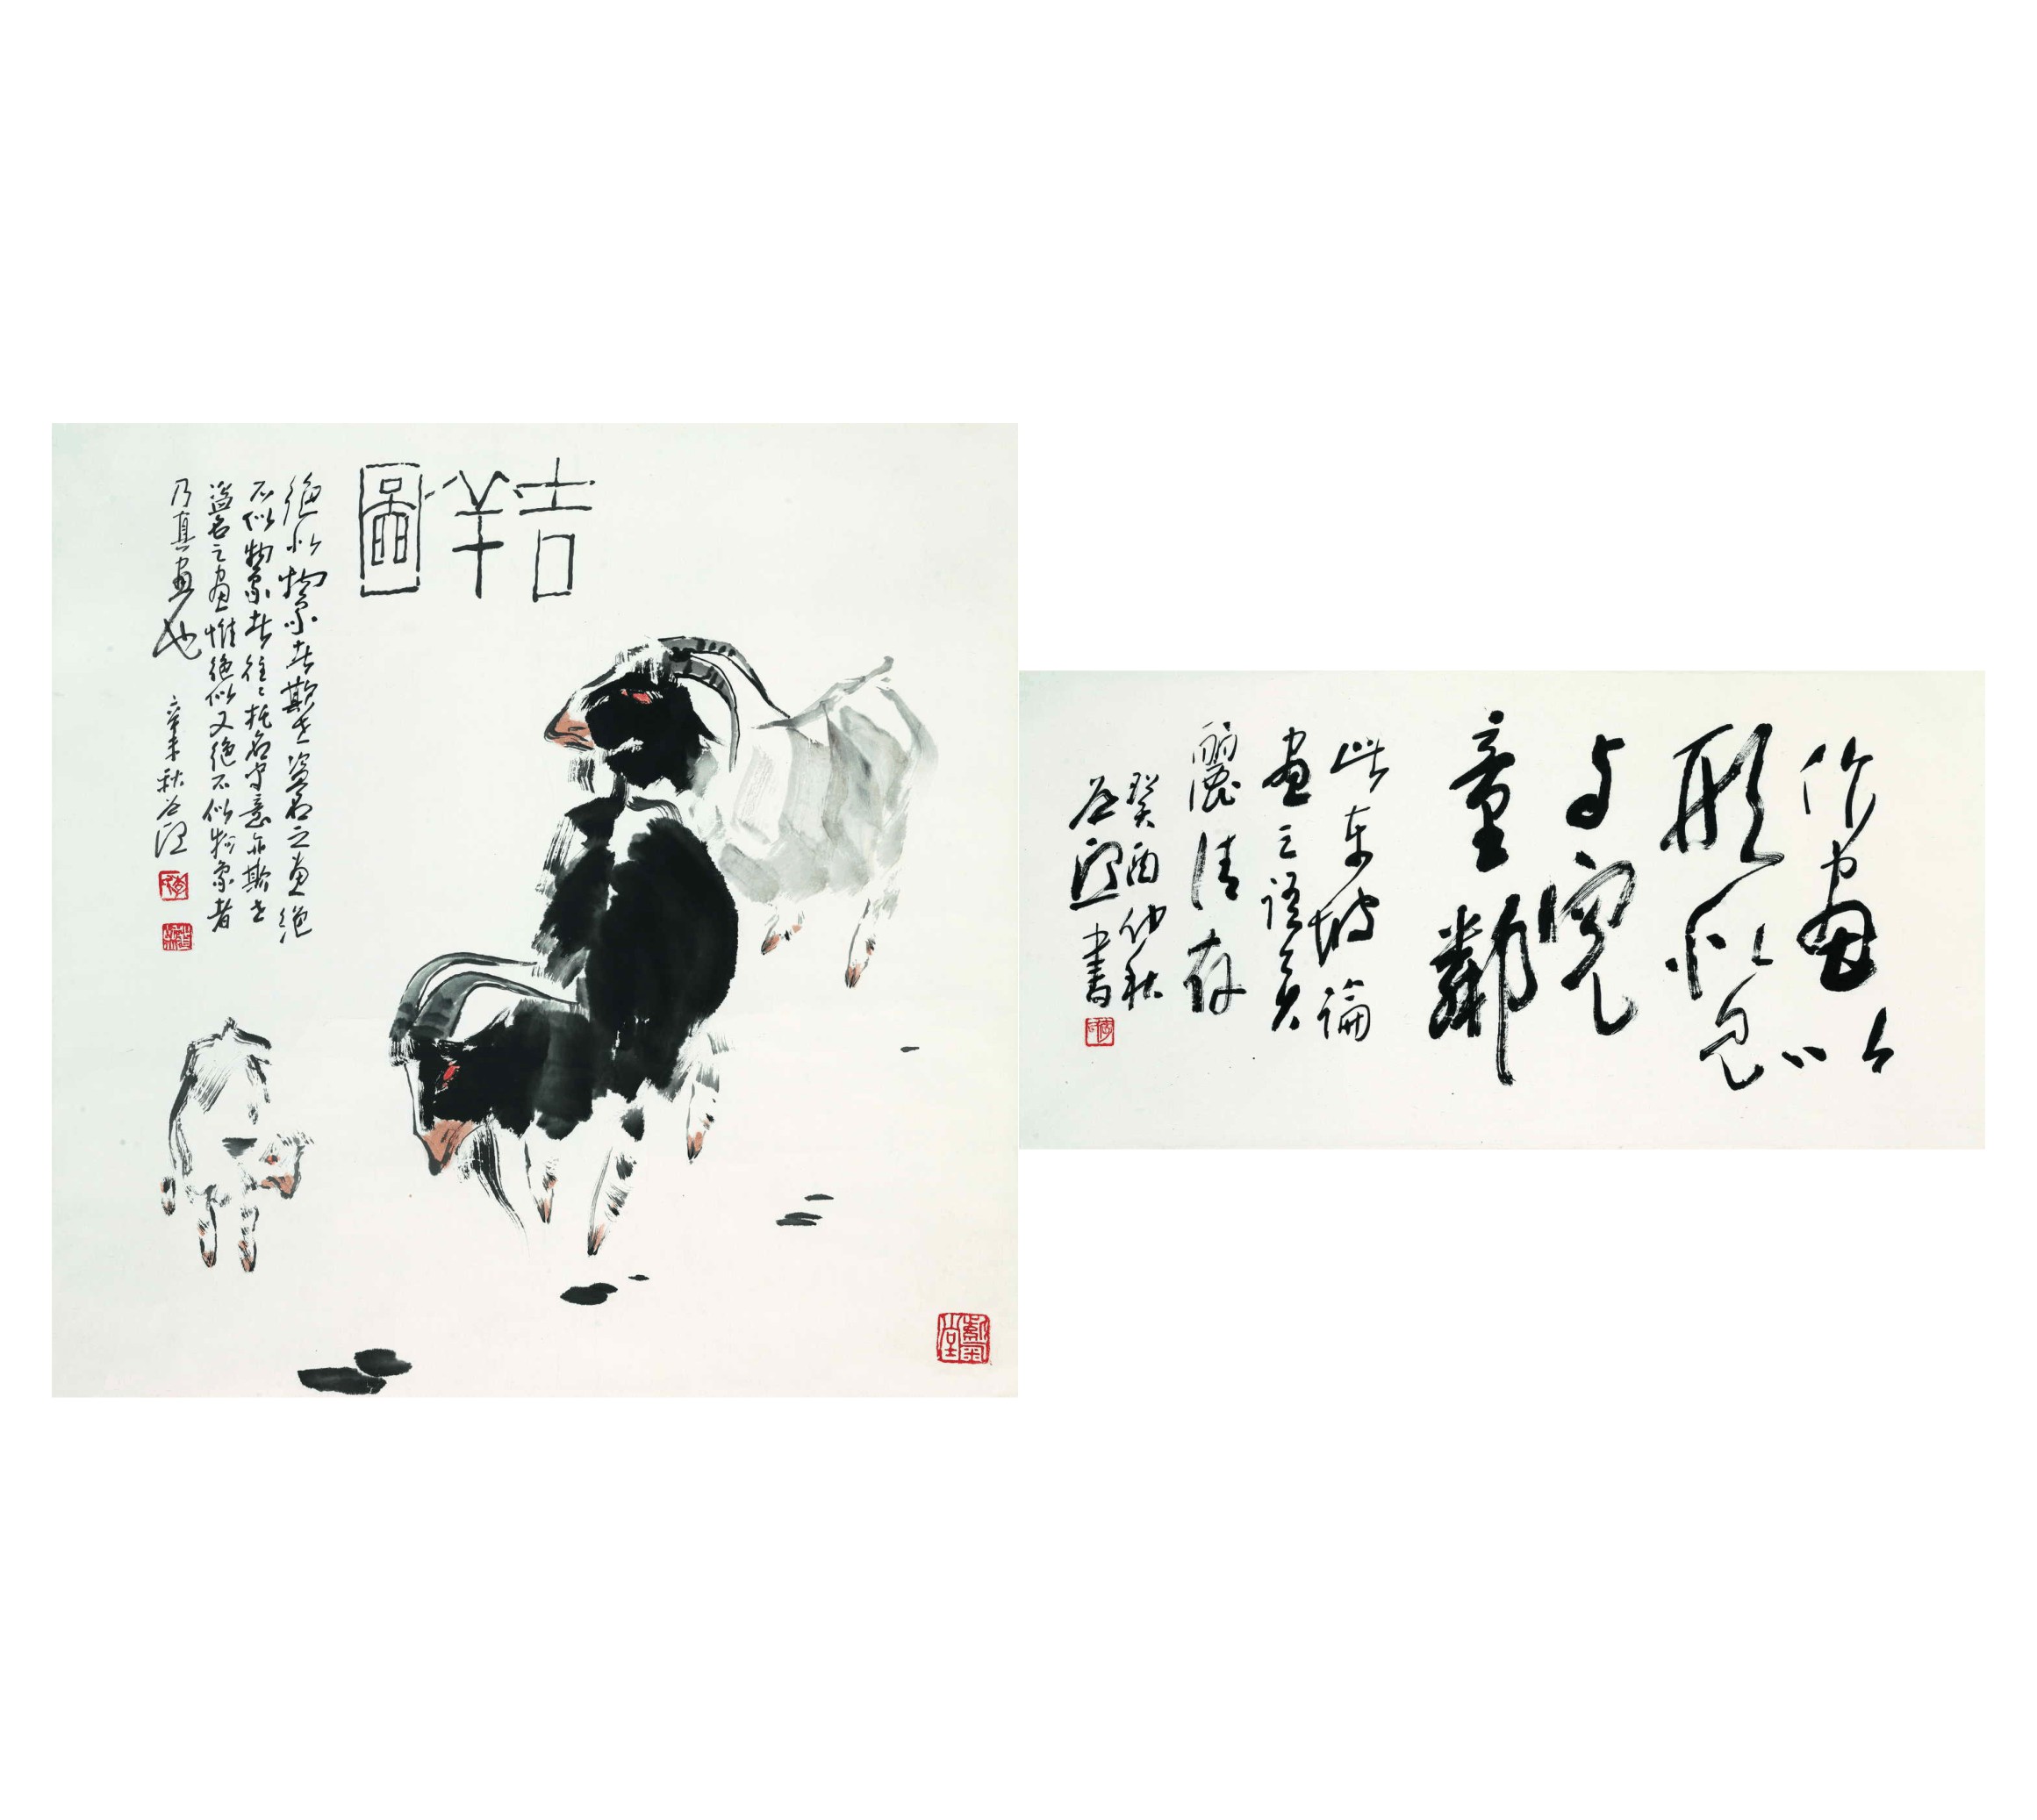 吉羊圖
絕似物象者欺世盜名之畫絕
不似物象者往往托名寫意亦欺世
盜名之畫惟絕似又絕不似物象者
乃真畫也
辛未秋
作畫以
形似見
与兒
童鄰
此東坡論
畫之語
麗清存
癸酉仲秋
書